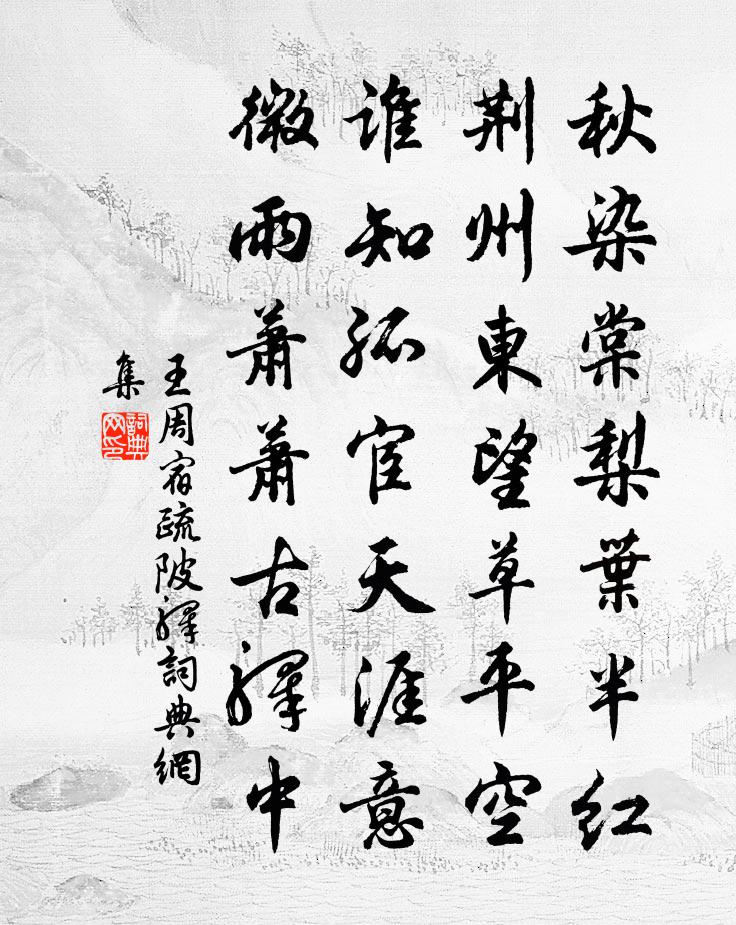 秋染棠梨葉半紅
荆州東望草平空
誰知孤宦天涯意
微雨蕭蕭古驛中
王周宿疏陂驛詞典網
集
詞典網印